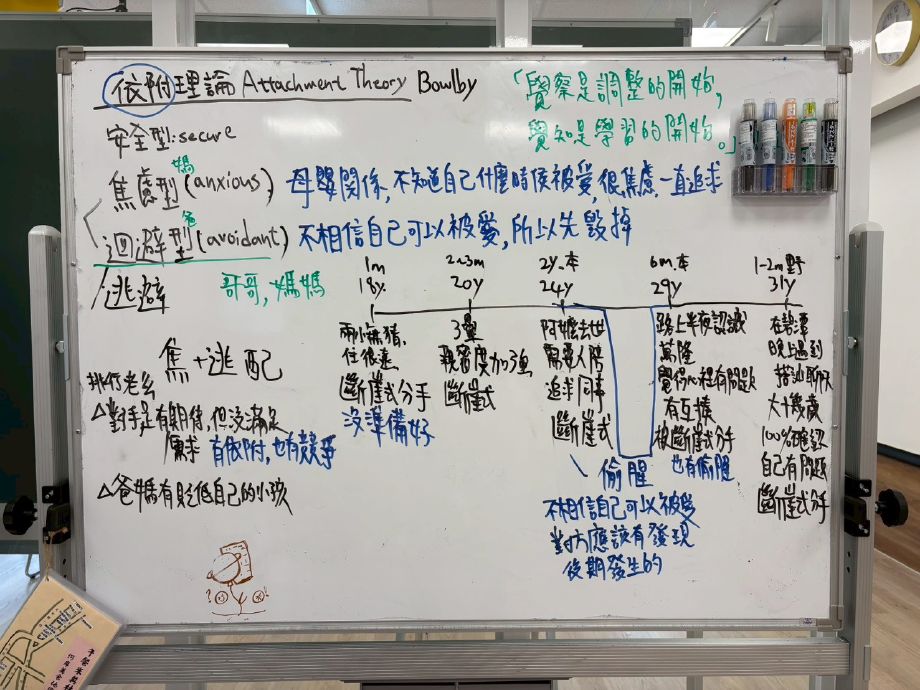 依附理論 Attachment Theory Bowlby
「覺察是調整的開始,
覺知是學習的開始。」
安全型:secure
焦慮型(anxious) 母嬰關係,不知道自己什麼時侯被愛,很焦慮一直追求
媽
迴避型(avoidant) 不相信自己可以被愛,所以先毀掉
爸
逃避 哥哥,媽媽
1m
18y.
兩小無猜.
住很遠
斷崖式分手
沒準備好
2~3m
20y
親密度加強
斷崖式
2y.本
24y
阿嬤去世
需要人陪
追求同事
斷崖式
偷腥
不相信自己可以被愛
對方應該有發現
後期發生的
6m.本
29y
萬隆
覺得心裡有問題
有互撩
被斷崖式分手
也有偷腥
1-2m野
31y
在碧潭
晚上遇到
搭訕聊天
100%確認
自己有問題
斷崖式分手
焦+逃配
排行老么
△對手足有期待,但沒滿足
需求 有依附,也有競爭
△爸媽有貶低自己的小孩